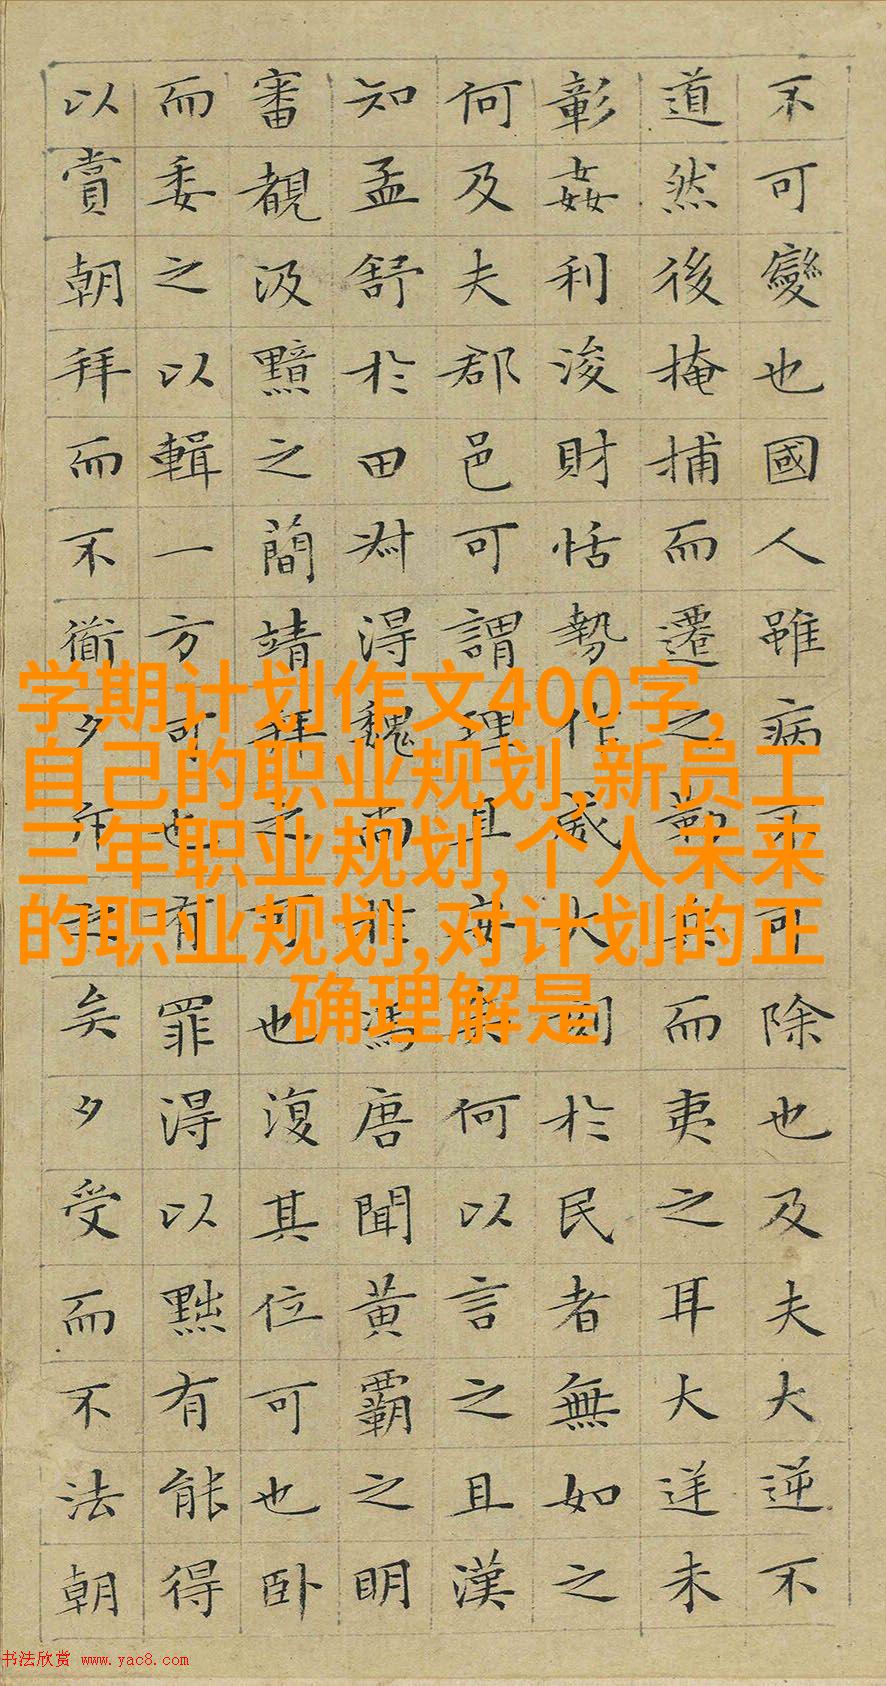 不可變也國人雖病不可除也及夫大逆不
道然後掩捕而遷之勒兵而夷之耳大逆未
彰姦利浚財恬勢作威大刻於民者無如之
何及夫郡邑可謂理且安矣何以言之且漢
知孟舒於田叔得魏尚於馮唐聞黃霸之明
審覩汲黯之簡靖拜之可也復其位可也臥
而委之以輯一方可也有罪得以黜有能得
以賞朝拜而不衜夕斥之矣夕受而不法朝
学期计划作文400字,
自己的职业规划,新员工
三年职业规划,个人未来
的职业规划,对计划的正
确理解是
书法欣赏 www.yac8.com